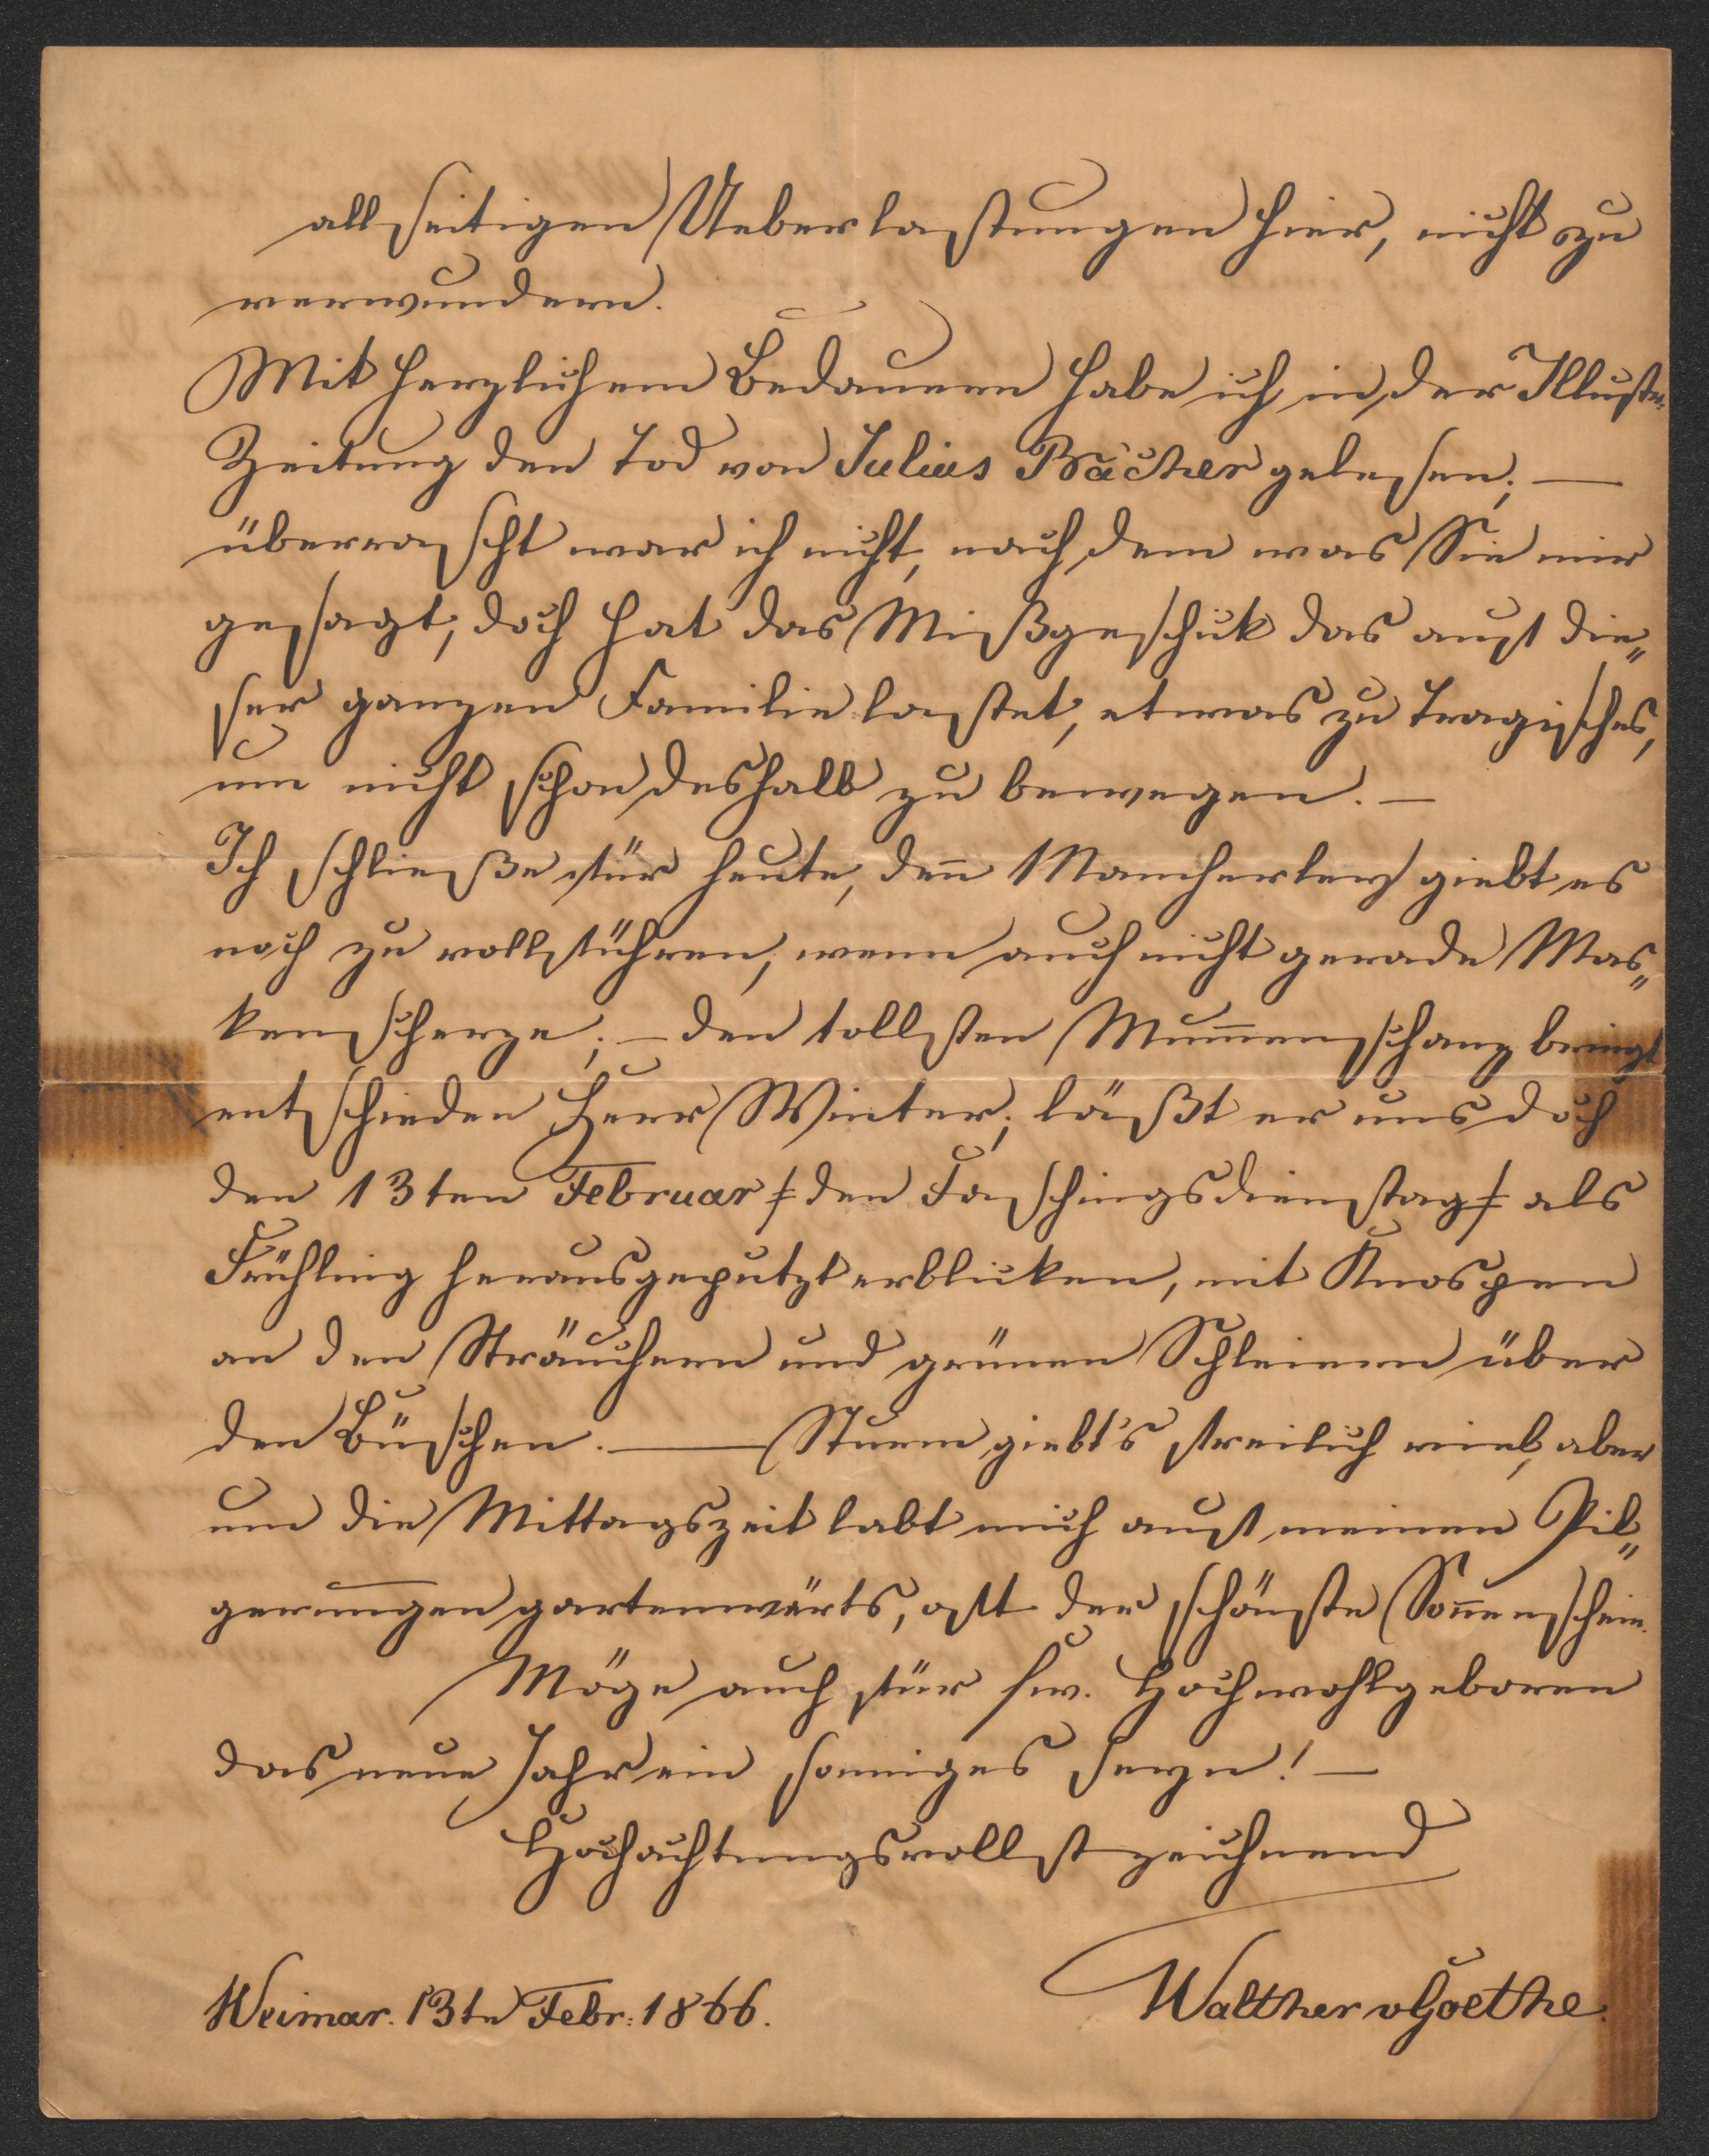 allseitigen Ueberlastungen hier, nicht zu
verwundern.
Mit herzlichem Bedauern habe ich in der Illustr.
Zeitung den Tod von Julius Bacher gelesen; —
überrascht war ich nicht, nach dem was Sie mir
gesagt, doch hat das Mißgeschik das auf die„
ser ganzen Familie lastet, etwas zu Tragisches,
um nicht schon deshalb zu bewegen. —
Ich schließe für heute, deñ Mancherley giebt es
noch zu vollführen, wenn auch nicht gerade Mas„
kenscherze; — den tollsten Mum̃enschanz bringt
entschieden Herr Winter; läßt er uns doch
den 13ten Februar /: den Faschingsdienstag :/ als
Frühling herausgeputzt erblicken, mit Knospen
an den Sträuchern und grünen Schleiern über
den Büschen. — Sturm giebt's freilich viel, aber
um die Mittagszeit labt mich auf meinen Pil„
gerungen gartenwärts, oft der schönste Son̄enschein.
Möge auch für Ew. Hochwohlgeboren
das neue Jahr ein sonniges seyn! —
Hochachtungsvollst zeichnend
Weimar. 13tn Febr: 1866.
Walther vGoethe.